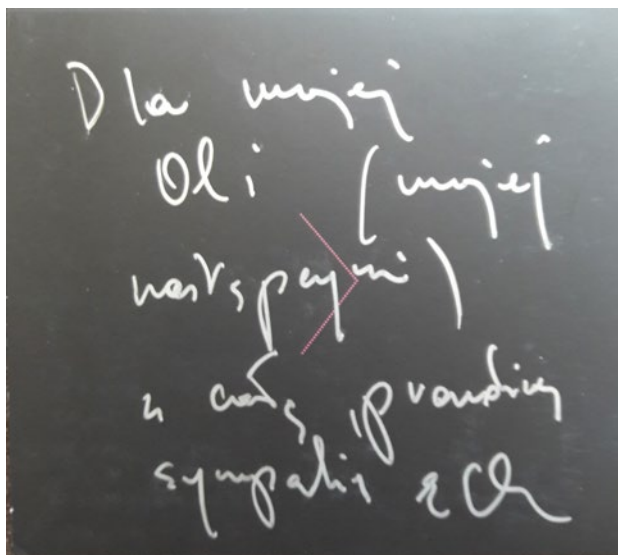 Dla mojej
Oli (mojej
następczyni)
z całą prawdziwą
sympatią